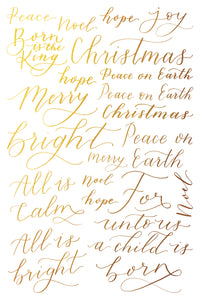 Peace
Noel
hope
joy
Born
is the
King
Christmas
hope
Peace on Earth
Merry
Peace on Earth
Christmas
bright
Peace on
Earth
merry
All is
Calm
noel
hope
For
Noel
unto us
a child is
born
All is
bright